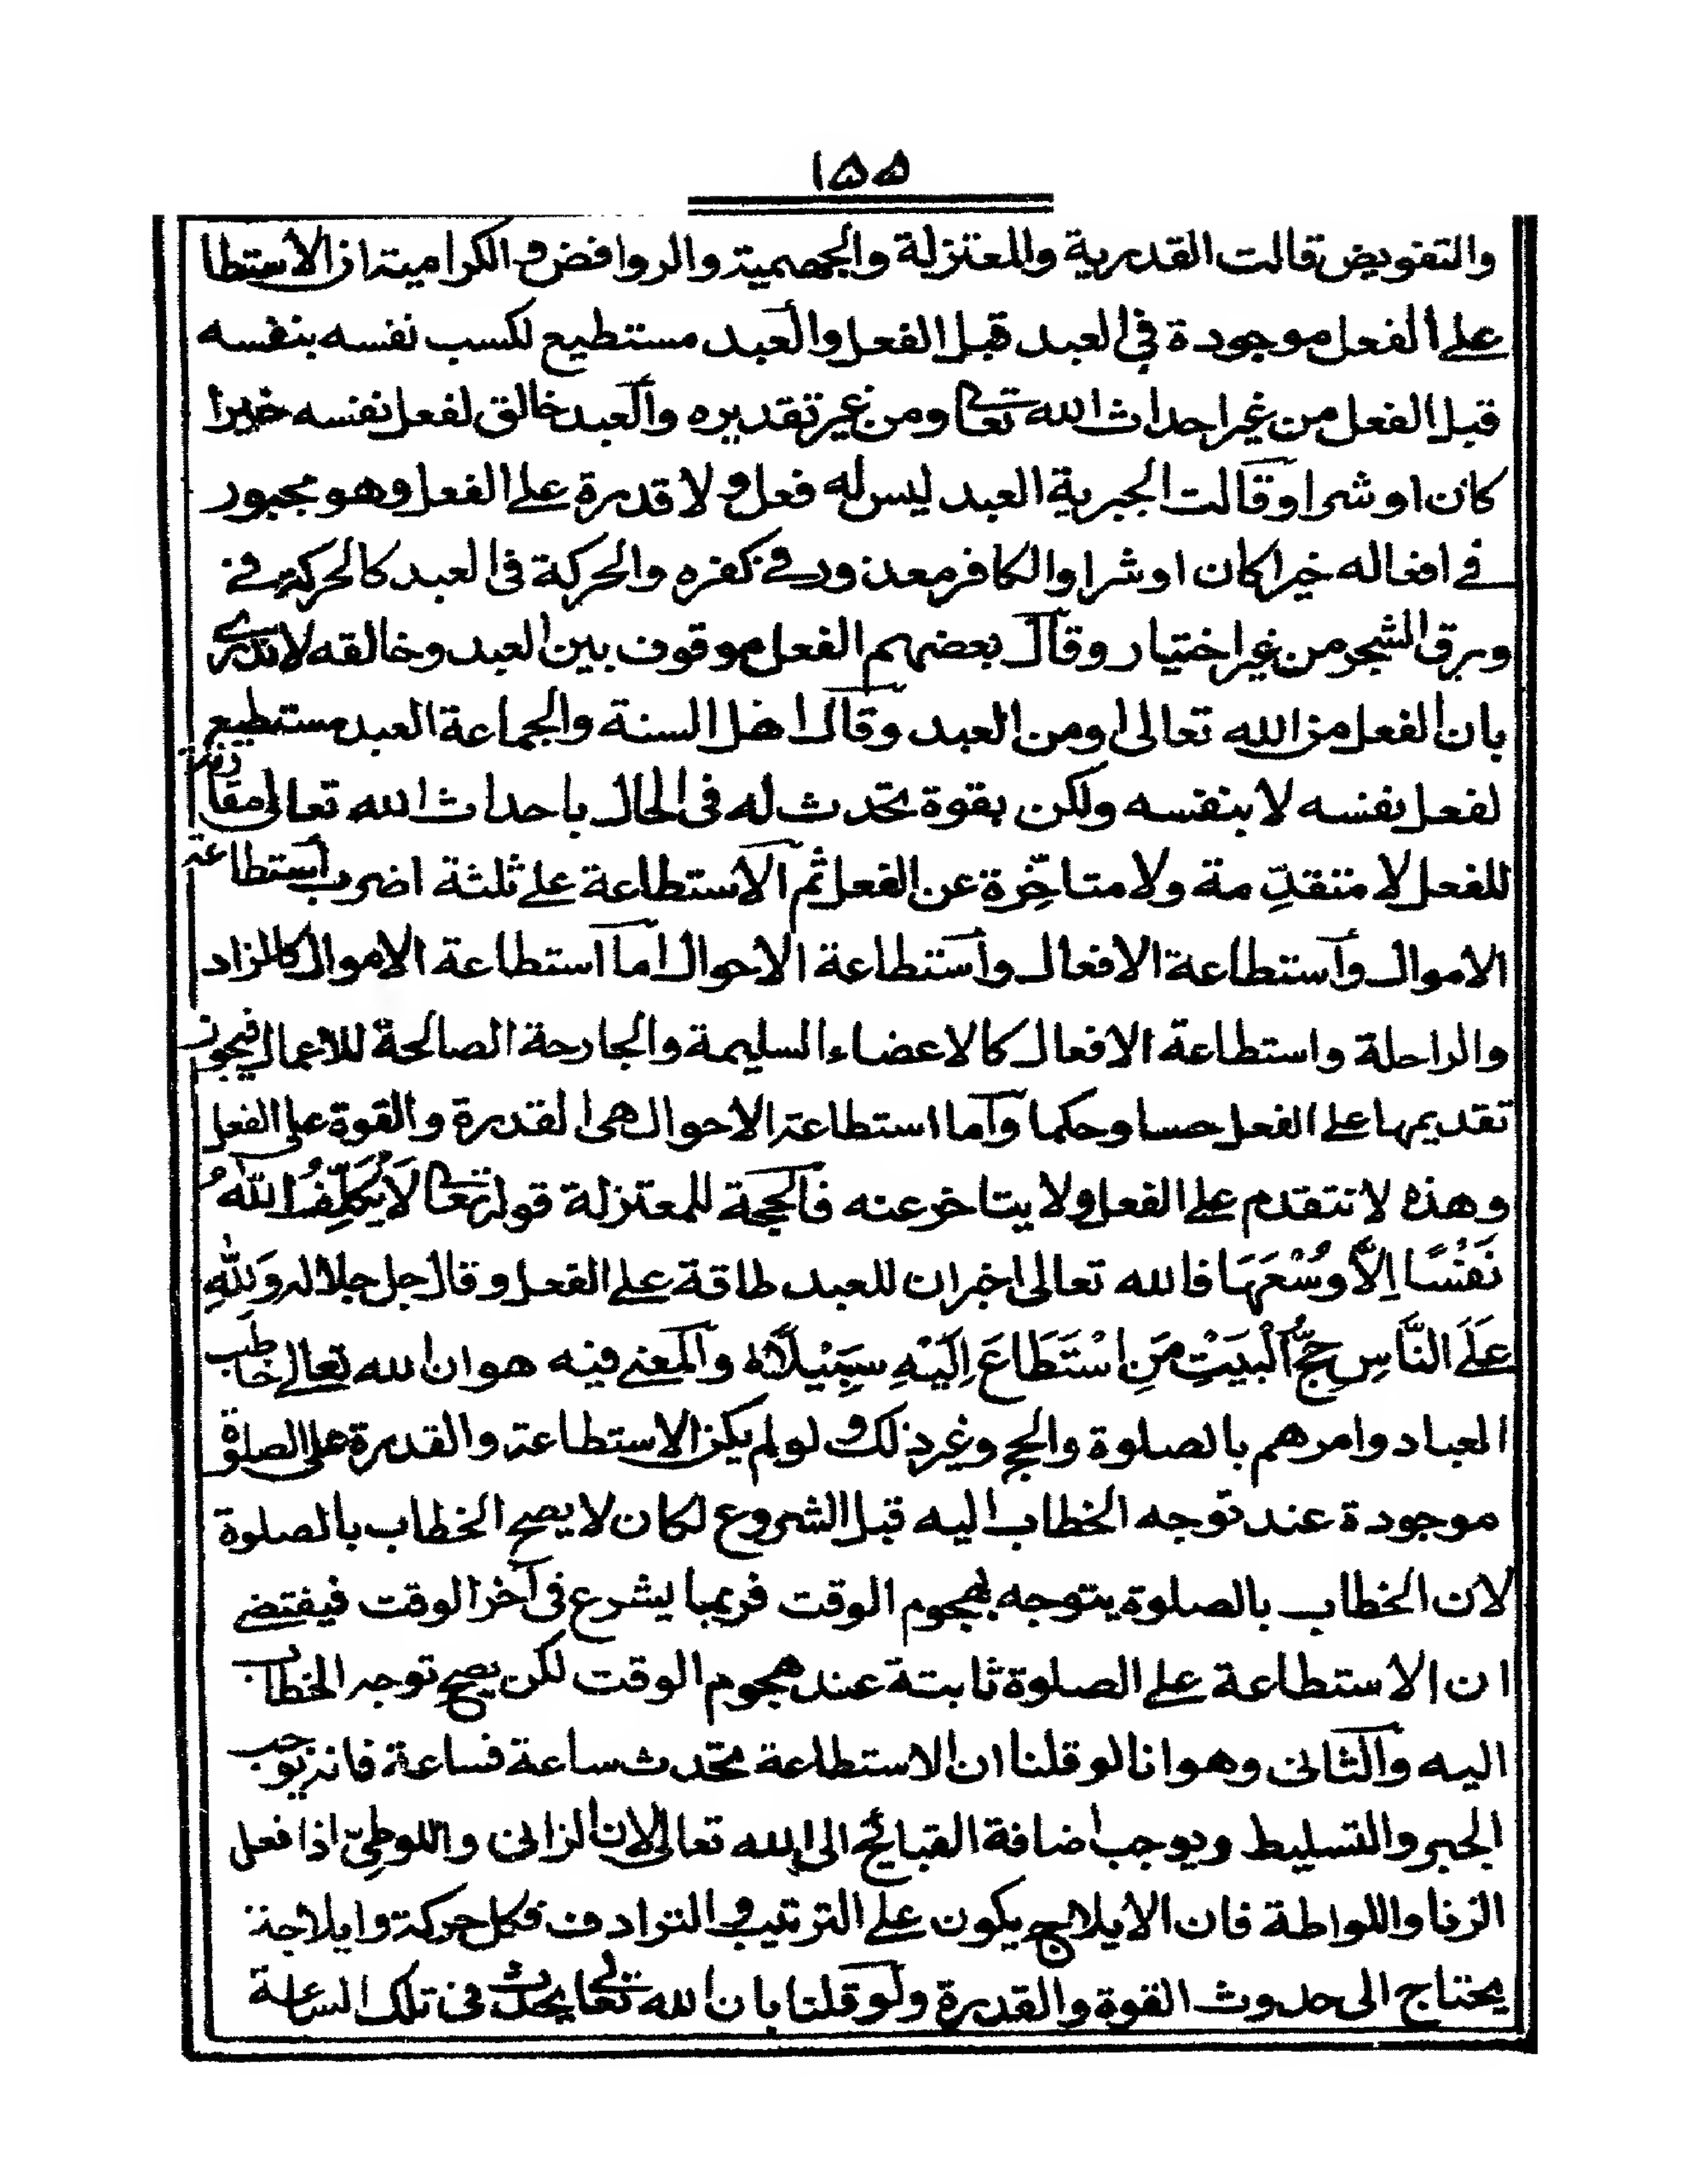 ۱۵۵
والتفويض قالت القدرية والمعتزلة والجهمية والروافض والكرامية ان الاستطا
على الفعل موجودة في العبد قبل الفعل والعبد مستطيع لكسب نفسه بنفسه
قبل الفعل من غير احداث الله تعالى ومن غير تقديره والعبد خالق لفعل نفسه خيرا
كان او شرا وقالت الجبرية العبد ليس له فعل ولا قدرة على الفعل وهو مجبور
في افعاله خيرا كان او شرا والكافر معذور في كفره والحركة في العبد كالحركة في
ورق الشجر من غير اختيار وقال بعضهم الفعل موقوف بين العبد وخالقه لا ندرى
بان الفعل من الله تعالى او من العبد وقال اهل السنة والجماعة العبد مستطيع
لفعل نفسه لا بنفسه ولكن بقوة تحدث له فى الحال باحداث الله تعالى مقا رفة
للفعل لا متقدِّمة ولا متاخِّرة عن الفعل ثم الاستطاعة على ثلثة اضرب استطاعة
الاموال واستطاعة الافعال واستطاعة الاحوال اما استطاعة الاموال كالزاد
والراحلة واستطاعة الافعال كالاعضاء السليمة والجارحة الصالحة للاعمال فيجوز
تقديمها على الفعل حسا وحكما واما استطاعة الاحوال هى القدرة والقوة على الفعل
وهذه لا تتقدم على الفعل ولا يتاخر عنه فالحجة للمعتزلة قوله تعالى لَا يُكَلِّفُ اللّٰهُ
نَفْسًا اِلَّا وُسْعَهَا فالله تعالى اخبر ان للعبد طاقة على الفعل وقال جل جلاله وَلِلّٰهِ
عَلَى النَّاسِ حِجُّ الْبَيْتِ مَنِ اسْتَطَاعَ اِلَيْهِ سَبِيْلًا ه والمعنى فيه هو ان الله تعالى خاطب
العباد وامرهم بالصلوة والحج وغير ذلك ولو لم يكن الاستطاعة والقدرة على الصلوة
موجودة عند توجه الخطاب اليه قبل الشروع لكان لا يصح الخطاب بالصلوة
لان الخطاب بالصلوة يتوجه بهجوم الوقت فربما يشرع فى آخر الوقت فيقتضے
ان الاستطاعة على الصلوة ثابتة عند هجوم الوقت لكن يصح توجه الخطاب
اليه والثانى وهو انا لو قلنا ان الاستطاعة تحدث ساعة فساعة فانه يوجب
الجبر والتسليط ويوجب اضافة القبائح الى الله تعالى لان الزانى واللوطىّ اذا فعل
الزنا واللواطة فان الايلاج يكون على الترتيب والترادف فكل حركة وايلاجة
يحتاج الى حدوث القوة والقدرة ولو قلنا بان الله تعالى يحدث فى تلك الساعة